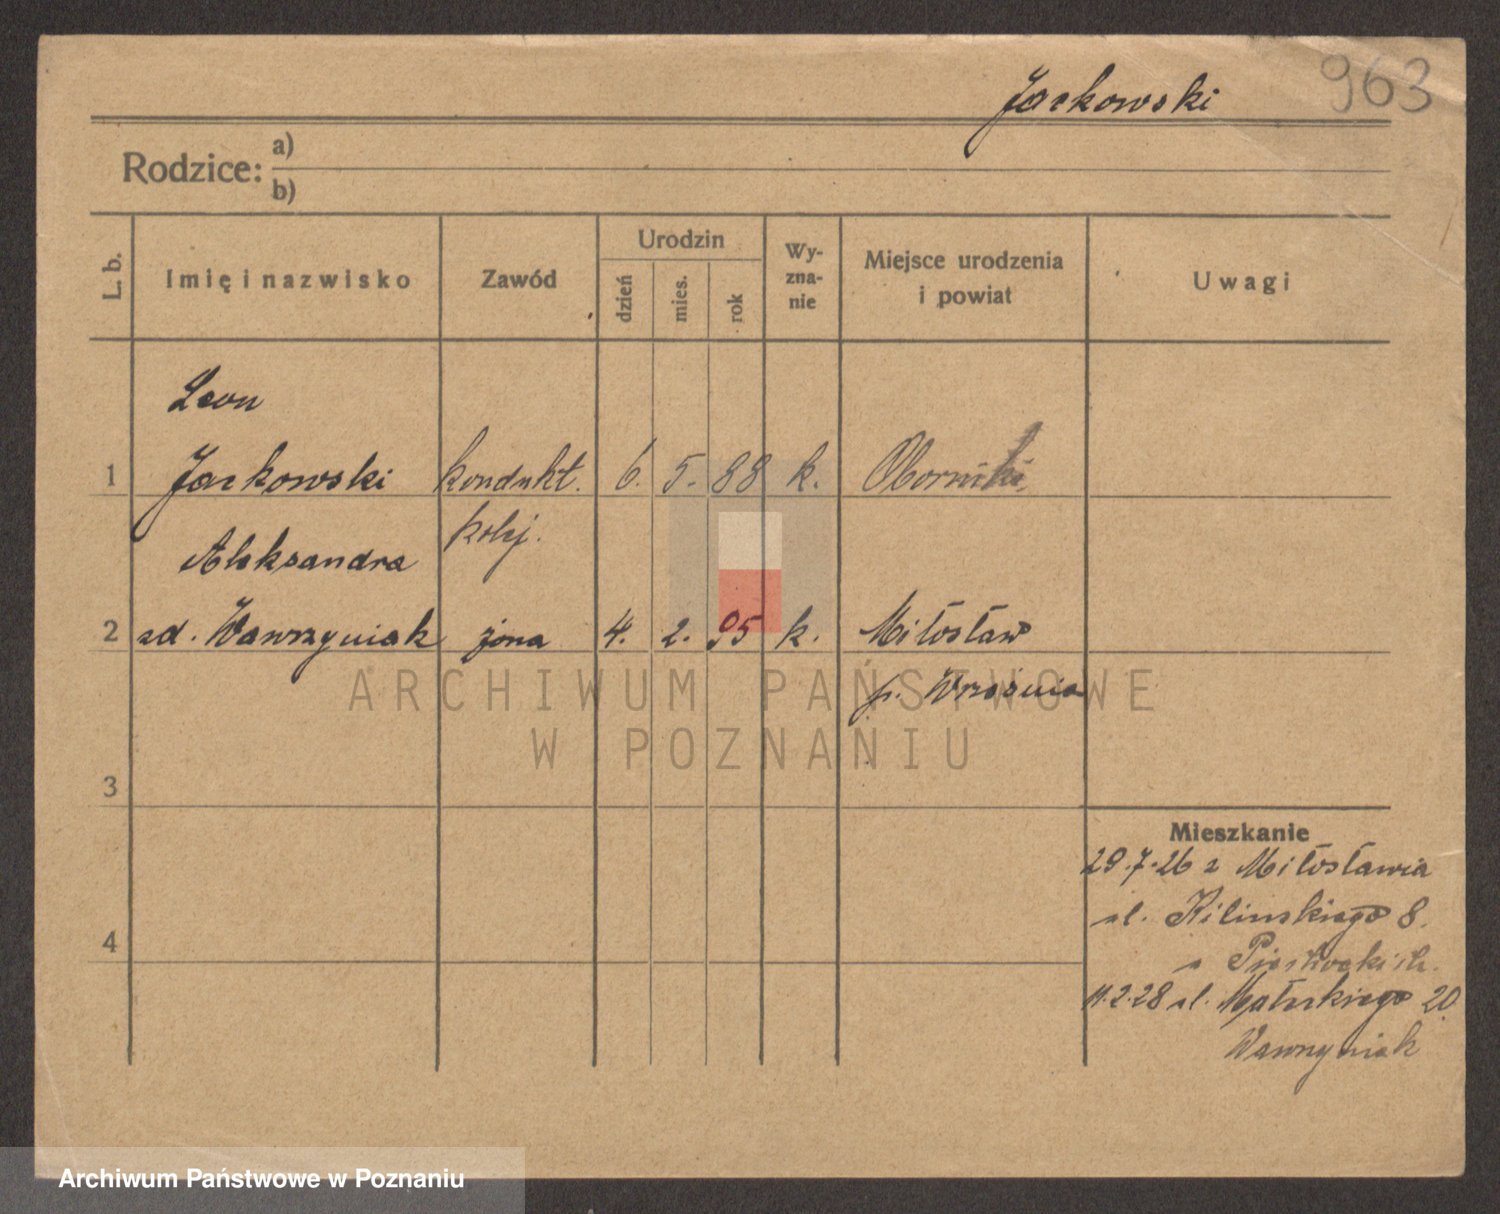 Jackowski 963
Rodzice: a)
b)
L. b. Imię i nazwisko Zawód Urodzin dzień mies. rok Wy-zna-nie Miejsce urodzenia i powiat Uwagi
Leon
1 Jackowski kondukt. 6. 5. 88 k. Oborniki
kolej.
Aleksandra
2 zd. Wawrzyniak żona 4. 2. 95 k. Miłosław
p. Września
ARCHIWUM PAŃSTWOWE
W POZNANIU
3
Mieszkanie
29.7.26 z Miłosławia
ul. Kilinskiego 8.
4
11.2.28 ul. 20
Wawrzyniak
Archiwum Państwowe w Poznaniu